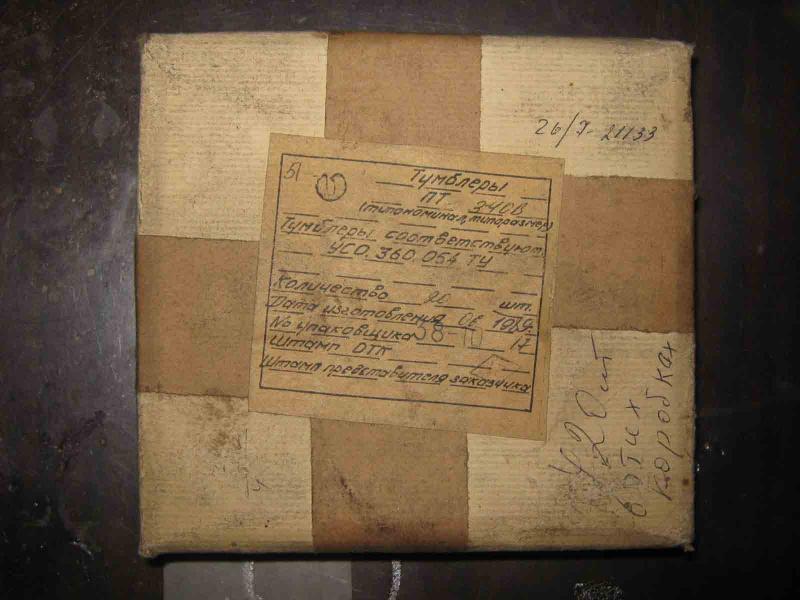 26/7- 21133
51
Тумблеры
ПТ 340В
(типономинал, типоразмер)
Тумблеры соответствуют
УСО. 360. 054 ТУ
Количество 20 шт.
Дата изготовления 06 19 г.
No упаковщика 17
Штамп ОТК
Штамп представителя заказчика
20 шт
в этих
коробках